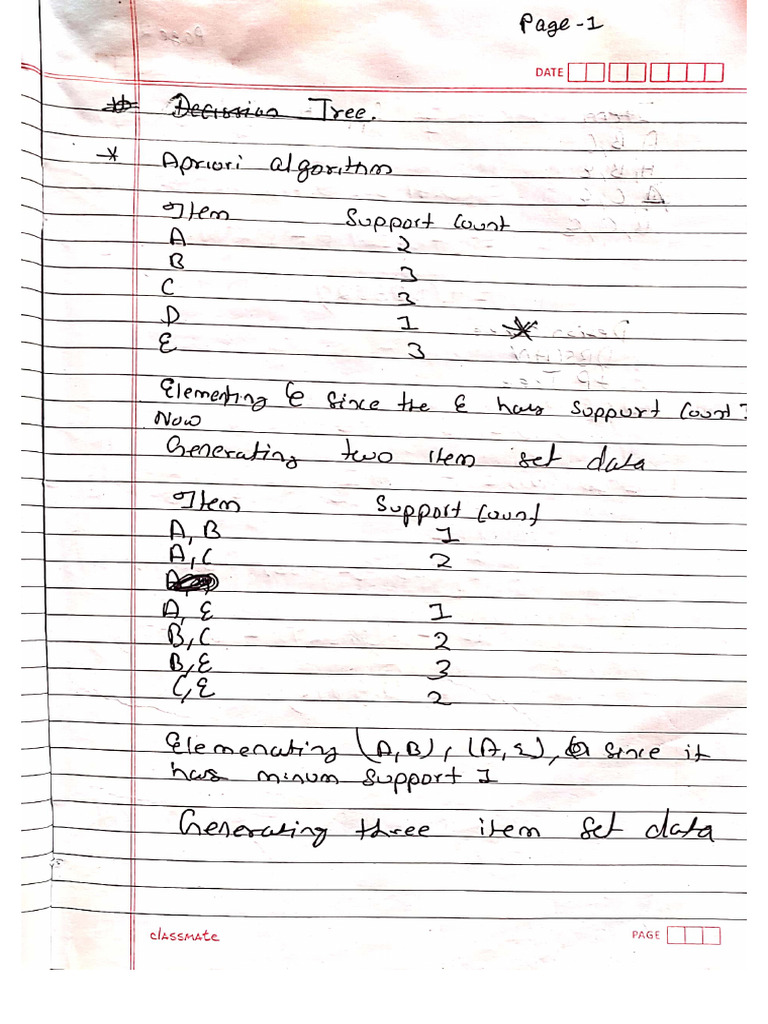 Page-1
DATE
Decission Tree.
* Apriori algorithm
Item Support Count
A 2
B 3
C 3
D 1
E 3
Elementing E since the E has support count
Now
Generating two item set data
Item Support Count
A, B 1
A, C 2
A, E 1
B, C 2
B, E 3
C, E 2
Elemenating (A, B), (A, E), since it
has minum support 1
Generating three item set data
classmate
PAGE